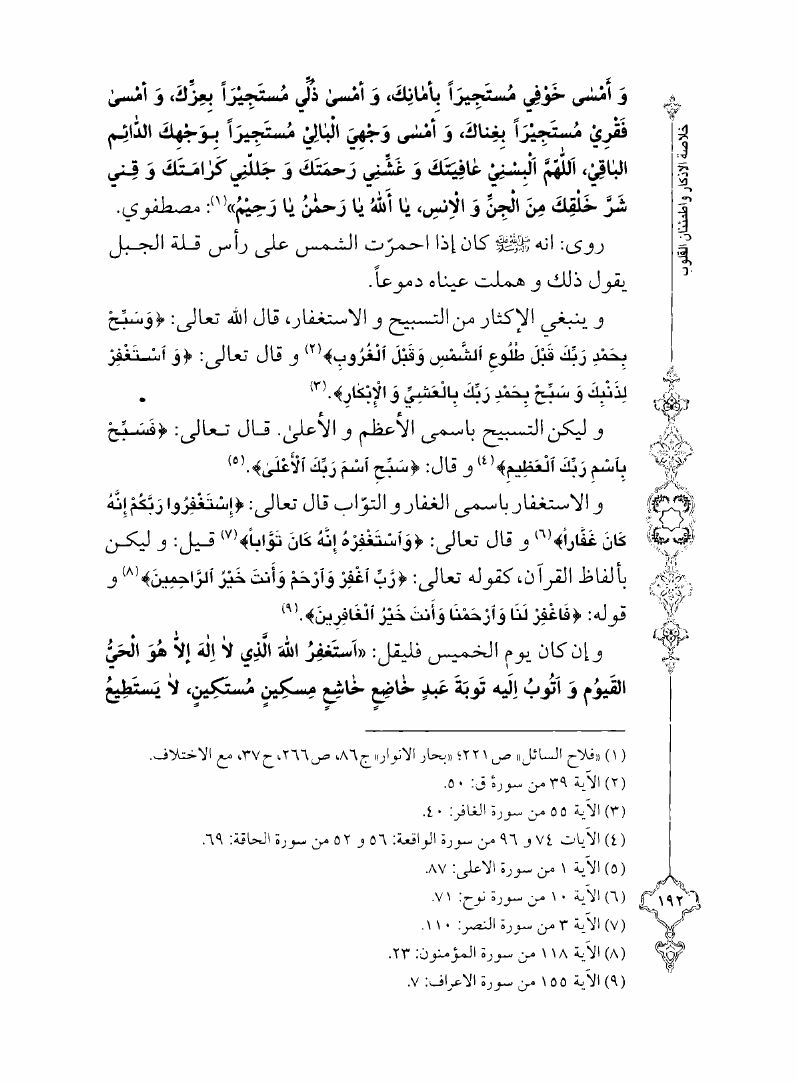 وَ أَمْسٰى خَوْفِي مُستَجِيرَاً بِأَمٰانِكَ، وَ أَمْسىٰ ذُلِّي مُستَجِيْرَاً بِعِزِّكَ، وَ أمْسىٰ
فَقْرِيْ مُستَجِيْرَاً بِغِناكَ، وَ أمْسٰى وَجْهِيَ الْبٰالِيْ مُستَجِيرَاً بِـوَجْهِكَ الدّٰائِـمِ
البٰاقِيْ، اَللّٰهُمَّ اَلْبِسْنِيْ عٰافِيَتَكَ وَ غَشِّنِي رَحمَتَكَ وَ جَلِلْنِي كَرٰامَـتَكَ وَ قِـنِي
شَرَّ خَلْقِكَ مِنَ الْجِنِّ وَ الْاِنسِ، يٰا أَللهُ يٰا رَحمٰنُ يٰا رَحِيْمُ»(١): مصطفوي.
روى: انه ﷺ كان إذا احمرّت الشمس على رأس قـلة الجـبل
يقول ذلك و هملت عيناه دموعاً.
و ينبغي الإكثار من التسبيح و الاستغفار، قال الله تعالى: ﴿وَسَبِّحْ
بِحَمْدِ رَبِّكَ قَبْلَ طُلُوعِ ٱلشَّمْسِ وَقَبْلَ ٱلْغُرُوبِ﴾(٢) و قال تعالى: ﴿وَ ٱسْـتَغْفِرْ
لِذَنْبِكَ وَ سَبِّحْ بِحَمْدِ رَبِّكَ بِالْعَشِيِّ وَ الْإِبْكٰارِ﴾.(٣)
و ليكن التسبيح باسمى الأعظم و الأعلىٰ. قـال تـعالى: ﴿فَسَـبِّحْ
بِٱسْمِ رَبِّكَ ٱلْعَظِيمِ﴾(٤) و قال: ﴿سَبِّحِ ٱسْمَ رَبِّكَ ٱلْأَعْلَىٰ﴾.(٥)
و الاستغفار باسمى الغفار و التوّاب قال تعالى: ﴿إِسْتَغْفِرُوا رَبَّكُمْ إِنَّهُ
كَانَ غَفَّاراً﴾(٦) و قال تعالى: ﴿وَٱسْتَغْفِرْهُ إِنَّهُ كَانَ تَوَّاباً﴾(٧) قـيل: و ليكـن
بألفاظ القرآن، كقوله تعالى: ﴿رَّبِّ ٱغْفِرْ وَٱرْحَمْ وَأَنتَ خَيْرُ ٱلرَّاحِمِينَ﴾(٨) و
قوله: ﴿فَاغْفِرْ لَنَا وَٱرْحَمْنَا وَأَنتَ خَيْرُ ٱلْغَافِرِينَ﴾.(٩)
و إن كان يوم الخميس فليقل: «اَستَغفِرُ اللهَ الَّذِي لاٰ اِلٰهَ اِلاّٰ هُوَ الْحَيُّ
القَيوُم وَ اَتُوبُ اِلَيه تَوبَةَ عَبدٍ خٰاضِعٍ خٰاشِعٍ مِسكِينٍ مُستَكِينٍ، لاٰ يَستَطِيعُ
(١) «فلاح السائل» ص ٢٢١؛ «بحار الانوار» ج ٨٦، ص ٢٦٦، ح ٣٧، مع الاختلاف.
(٢) الآية ٣٩ من سورة ق: ٥٠.
(٣) الآية ٥٥ من سورة الغافر: ٤٠.
(٤) الآيات ٧٤ و ٩٦ من سورة الواقعة: ٥٦ و ٥٢ من سورة الحاقة: ٦٩.
(٥) الآية ١ من سورة الاعلى: ٨٧.
(٦) الآية ١٠ من سورة نوح: ٧١.
(٧) الآية ٣ من سورة النصر: ١١٠.
(٨) الآية ١١٨ من سورة المؤمنون: ٢٣.
(٩) الآية ١٥٥ من سورة الاعراف: ٧.
خلاصة الاذكار واطمئنان القلوب
١٩٢